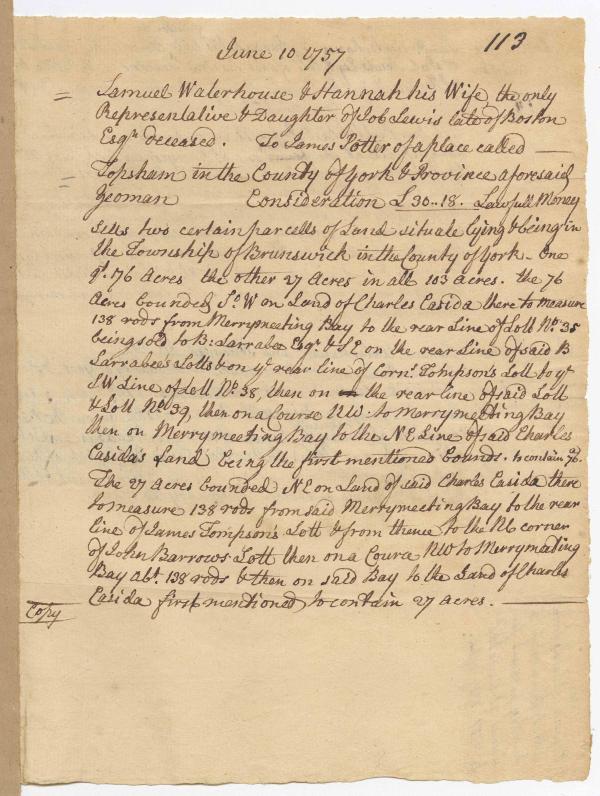 113
June 10 1757
= Samuel Waterhouse & Hannah his Wife the only
Representative & Daughter of Job Lewis late of Boston
Esqr. deceased. To James Potter of a place called —
= Topsham in the County of York & Province aforesaid
Yeoman Consideration £30..18. Lawfull Money
sells two certain parcells of Land situate lying & being in
the Township of Brunswick in the County of York - One
qt. 76 Acres the other 27 Acres in all 103 acres. the 76
Acres bounded So. W on Land of Charles Casida there to measure
138 rods from Merrymeeting Bay to the rear Line of Lott No. 35
being sold to B: Larrabee Esqr. & S E on the rear Line of said B
Larrabee's Lotts & on ye. rear line of Corns. Tompson's Lott to ye.
S W Line of Lott No. 38, then on the rear line of said Lott
& Lott No. 39, then on a Course NW: to Merrymeeting Bay
then on Merrymeeting Bay to the N E Line of said Charles
Casida's Land being the first mentioned bounds. to contain 76.
The 27 Acres bounded N E on Land of said Charles Casida there
to measure 138 rods from said Merrymeeting Bay to the rear
line of James Tompson's Lott & from thence to the No corner
of John Barrows Lott then on a Courx NW to Merrymeeting
Bay abt. 138 rods & then on said Bay to the Land of Charles
Casida first mentioned to contain 27 acres. —
Copy